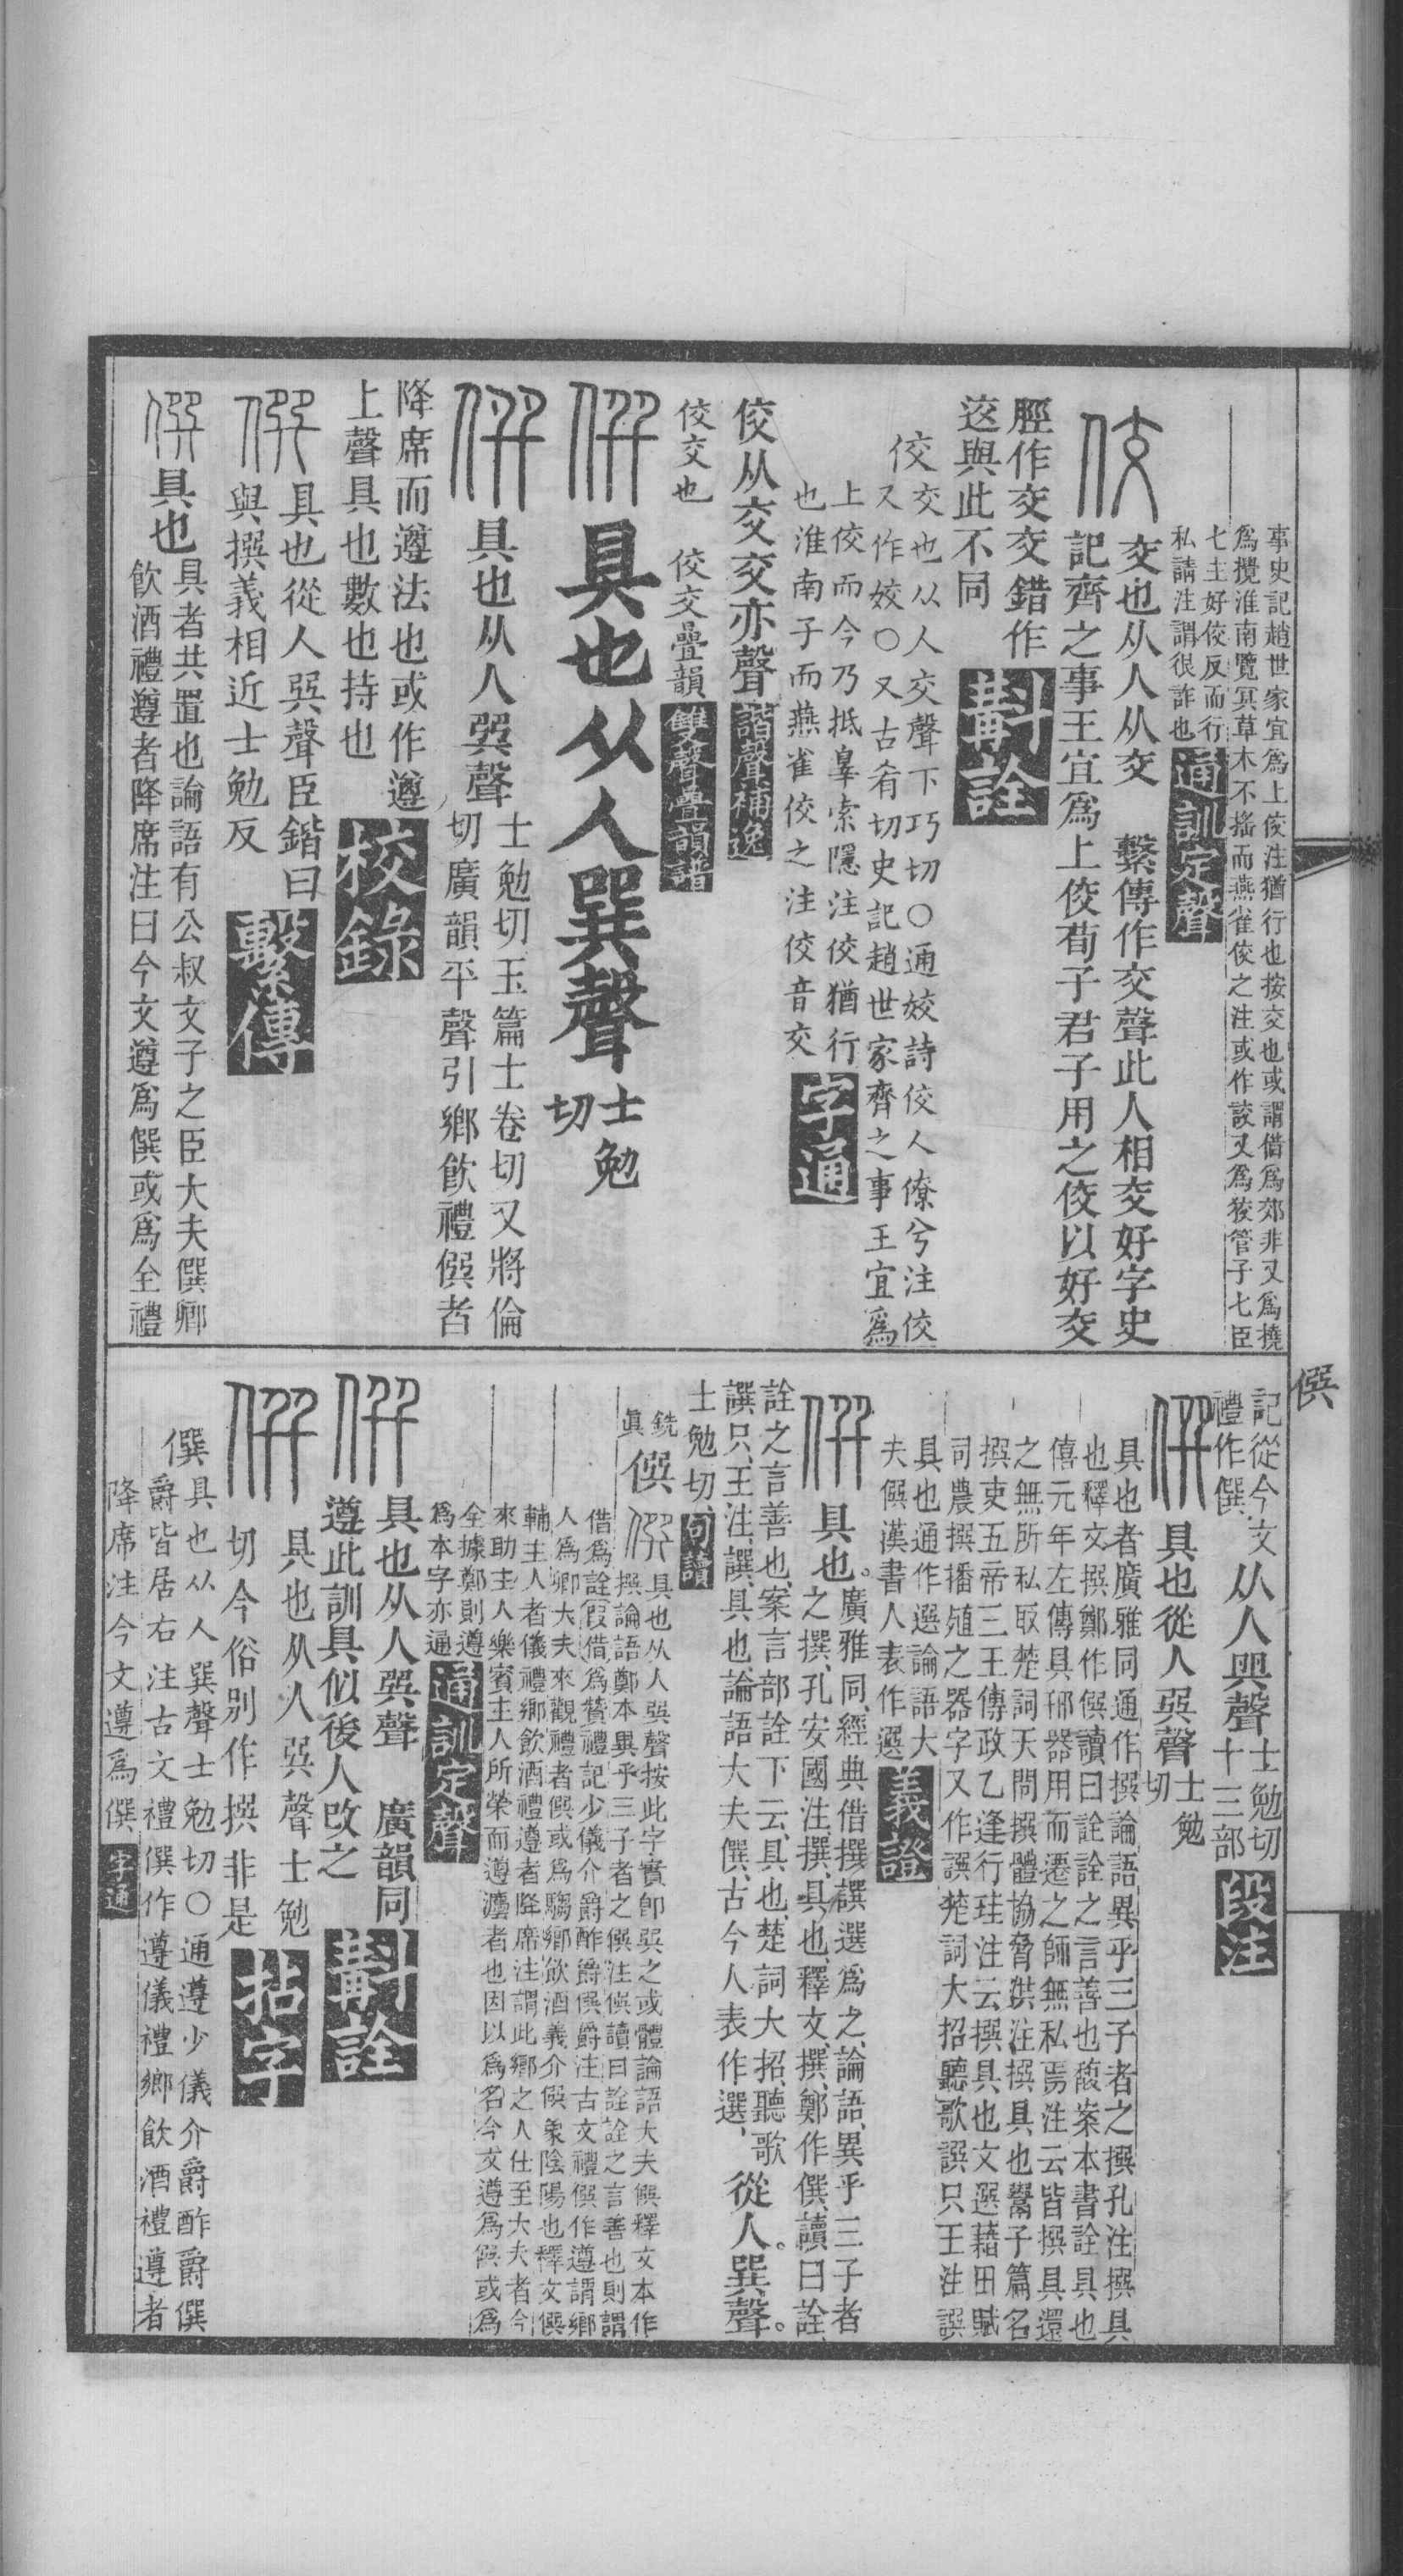 事史記趙世家宜爲上佼注猶行也按交也或謂借爲郊非又爲撓
爲攪淮南覽冥草木不搖而燕雀佼之注或作詨又爲狡管子七臣
七主好佼反而行
私請注謂很詐也
通訓定聲
交也从人从交　繫傳作交聲此人相交好字史
記齊之事王宜爲上佼荀子君子用之佼以好交
脛作交交錯作
𨒪與此不同
斠詮
佼
交也从人交聲下巧切○通姣詩佼人僚兮注佼
又作姣○又古肴切史記趙世家齊之事王宜爲
上佼而今乃抵辠索隱注佼猶行
也淮南子而燕雀佼之注佼音交
字通
佼从交交亦聲
諧聲補逸
佼交也　佼交疊韻
雙聲疊韻譜
具也从人巽聲
士勉
切
具也从人巽聲
士勉切玉篇士卷切又將倫
切廣韻平聲引鄉飮禮僎者
降席而遵法也或作遵
上聲具也數也持也
校錄
具也從人巽聲臣鍇曰
與撰義相近士勉反
繫傳
具也
具者共置也論語有公叔文子之臣大夫僎鄉
飮酒禮遵者降席注曰今文遵爲僎或爲全禮
僎
記從今文
禮作僎
从人巽聲
士勉切
十三部
段注
具也從人巽聲
士勉
切
具也者廣雅同通作撰論語異乎三子者之撰孔注撰具
也釋文撰鄭作僎讀曰詮詮之言善也馥案本書詮具也
僖元年左傳具邢器用而遷之師無私焉注云皆撰具還
之無所私取楚詞天問撰體協脅洪注撰具也鬻子篇名
撰吏五帝三王傳政乙逢行珪注云撰具也文選藉田賦
司農撰播殖之器字又作譔楚詞大招聽歌譔只王注譔
具也通作選論語大
夫僎漢書人表作選
義證
具也。
廣雅同經典借撰譔選爲之論語異乎三子者
之撰孔安國注撰具也釋文撰鄭作僎讀曰詮
詮之言善也案言部詮下云具也楚詞大招聽歌
譔只王注譔具也論語大夫僎古今人表作選
從人。巽聲。
士勉切
句讀
銑
眞
僎
具也从人巽聲按此字實卽巽之或體論語大夫僎釋文本作
撰論語鄭本異乎三子者之僎注僎讀曰詮詮之言善也則謂
借爲詮假借爲贊禮記少儀介爵酢爵僎爵注古文禮僎作遵謂鄉
人爲卿大夫來觀禮者僎或爲騶鄉飮酒義介僎象陰陽也釋文僎
輔主人者儀禮鄉飮酒禮遵者降席注謂此鄉之人仕至大夫者今
來助主人樂賓主人所榮而遵灋者也因以爲名今文遵爲僎或爲
全據鄭則遵
爲本字亦通
通訓定聲
具也从人巽聲　廣韻同
遵此訓具似後人改之
斠詮
具也从人巽聲士勉
切今俗別作撰非是
拈字
僎
具也从人巽聲士勉切○通遵少儀介爵酢爵僎
爵皆居右注古文禮僎作遵儀禮鄉飮酒禮遵者
降席注今文遵爲僎
字通